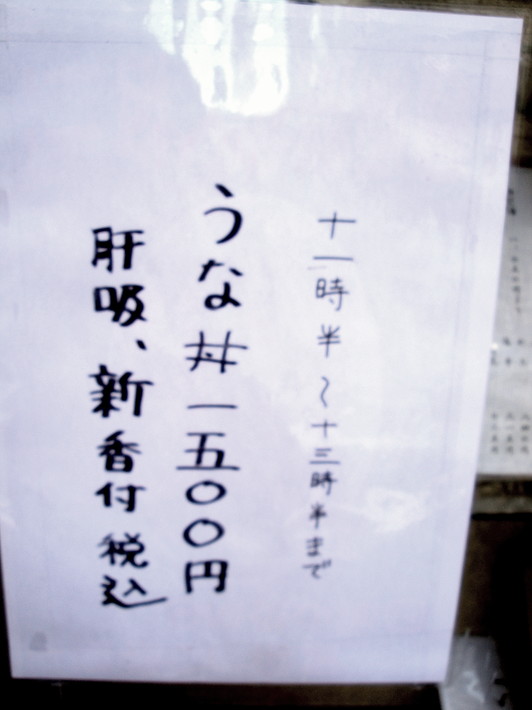 十一時半〜十三時半まで
うな丼一五〇〇円
肝吸、新香付税込